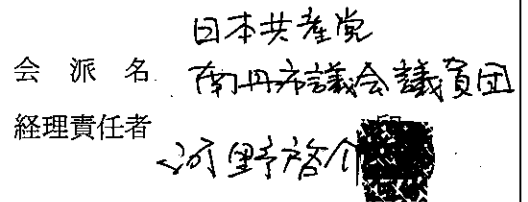 日本共産党
会派名 南丹市議会議員団
経理責任者
河野啓介